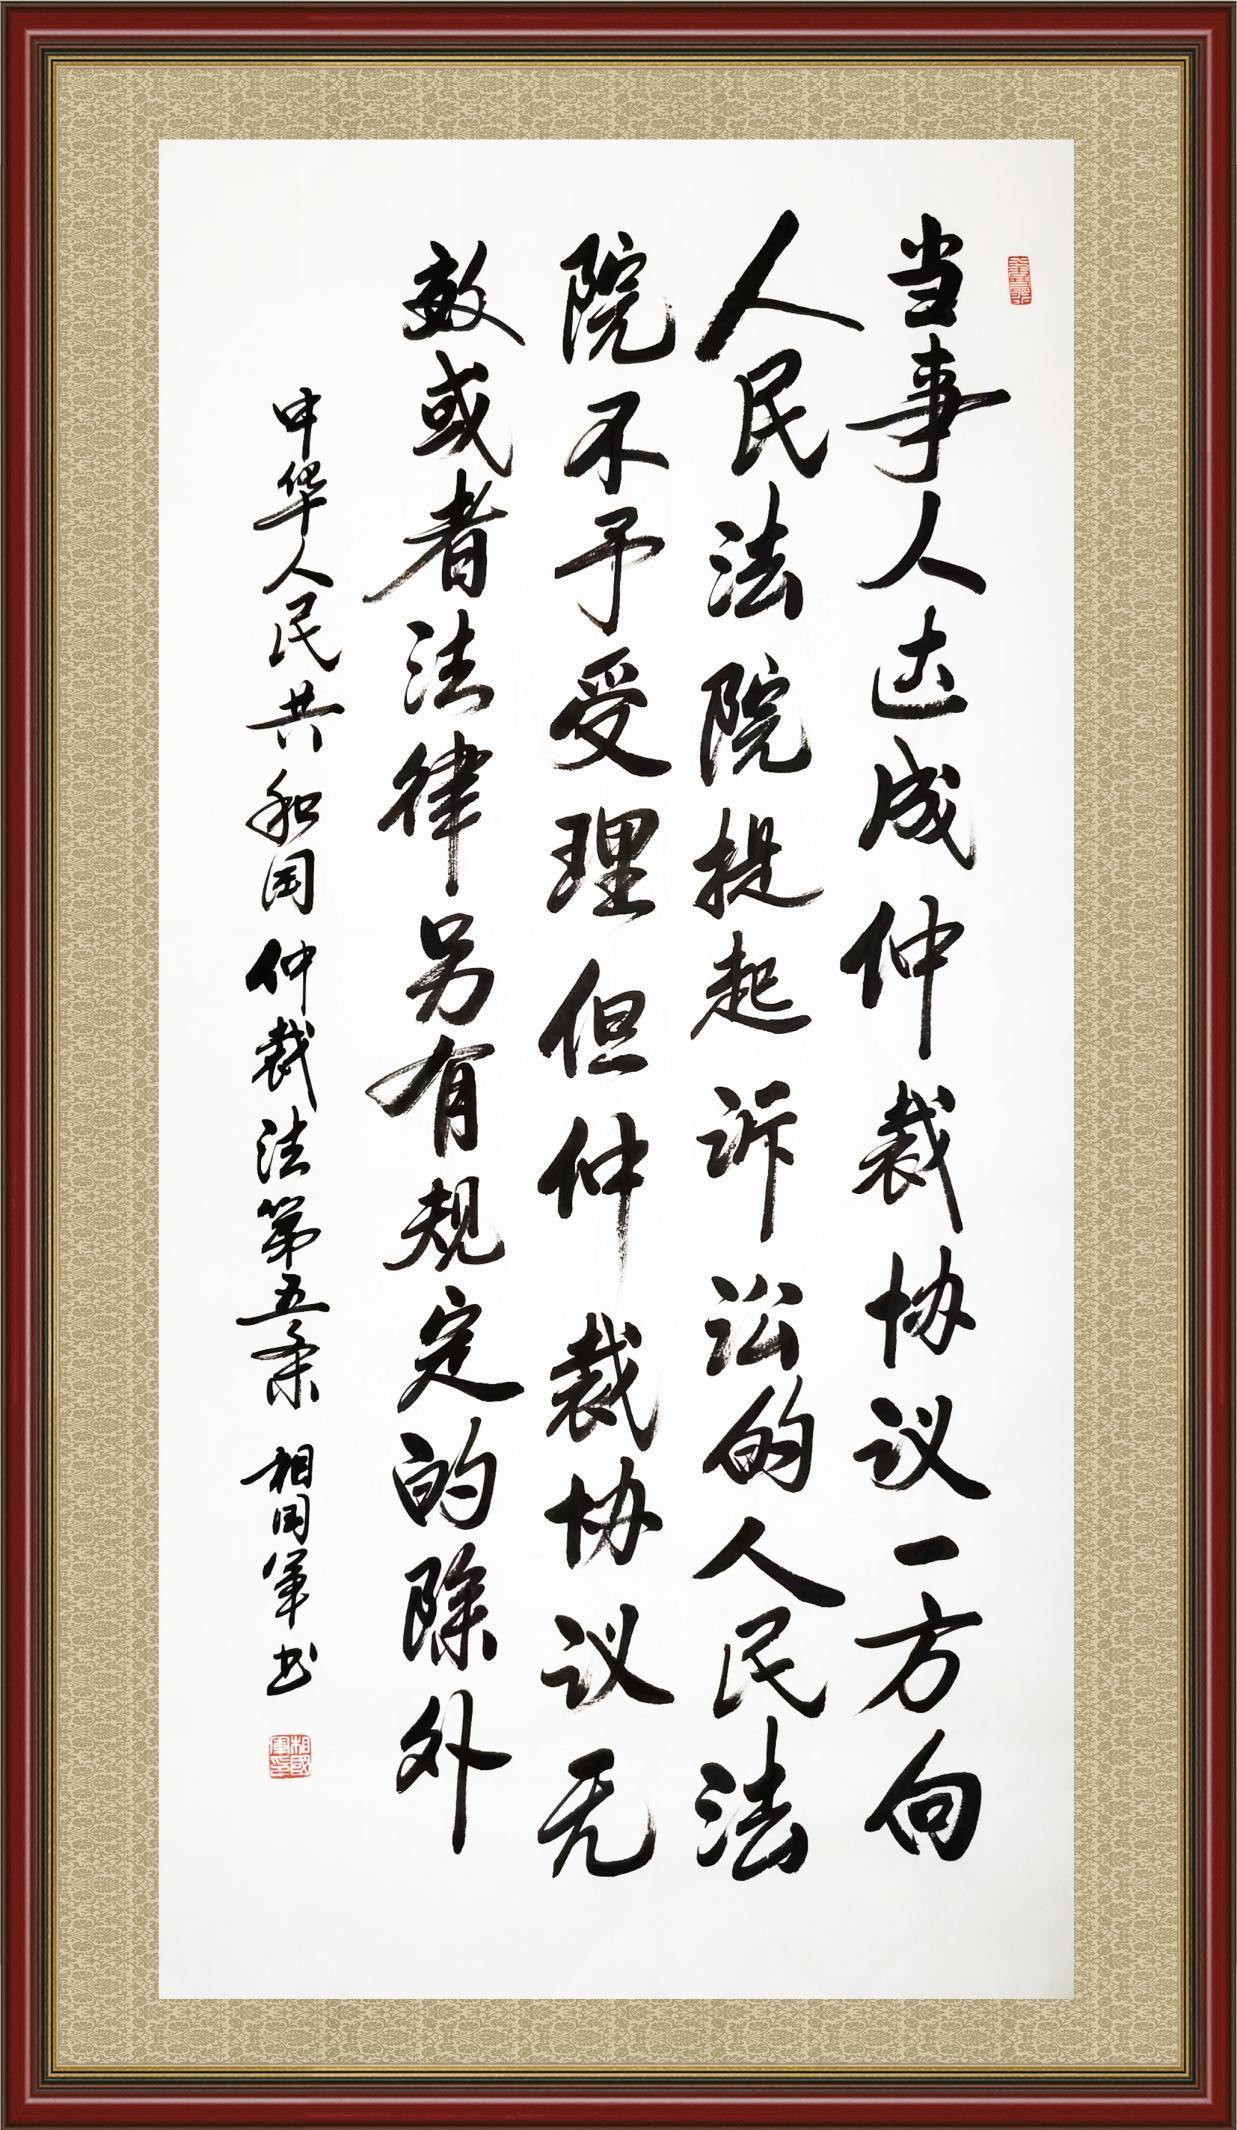 当事人达成仲裁协议一方向
人民法院提起诉讼的人民法
院不予受理但仲裁协议无
效或者法律另有规定的除外
中华人民共和国仲裁法第五条 相国军书
相國軍印